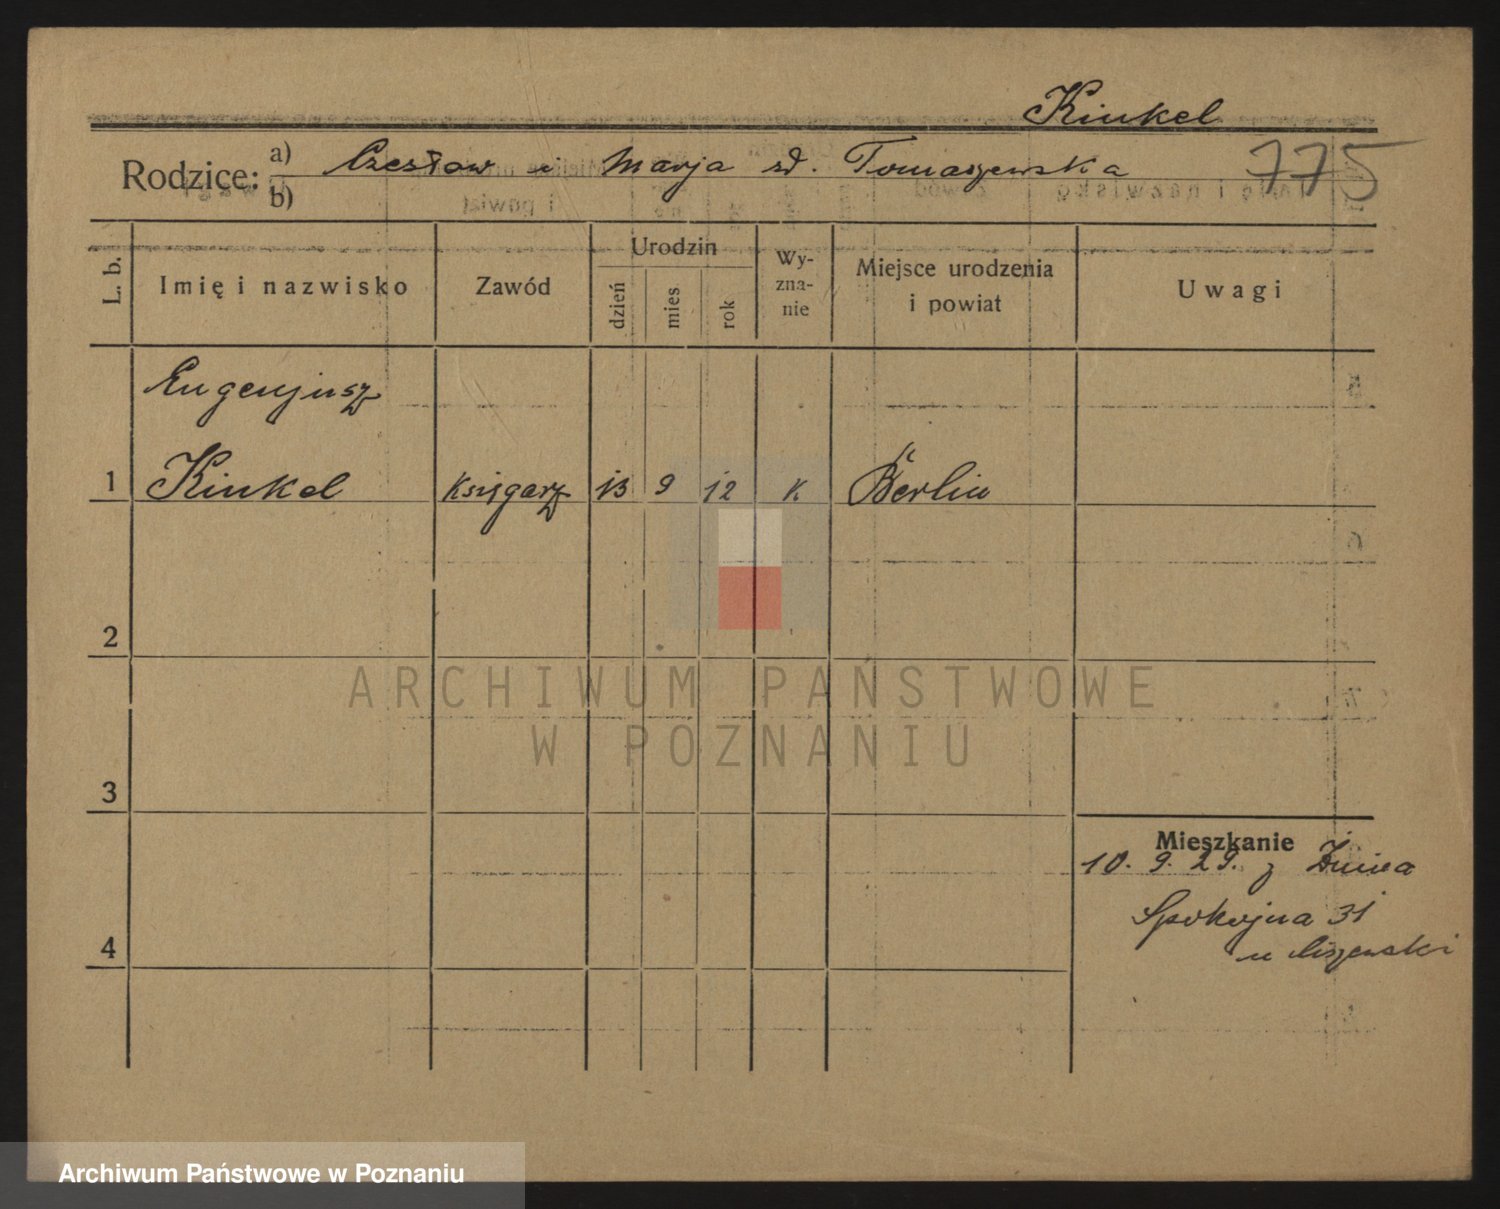 Kinkel
775
Rodzice: a) Czesław i Marja zd. Tomaszewska
b)
L. b. Imię i nazwisko Zawód Urodzin dzień mies rok Wy-zna-nie Miejsce urodzenia i powiat Uwagi
Eugenjusz
1 Kinkel księgarz 13 9 12 K Berlin
2
3
4
Mieszkanie
10. 9. 29. z Żnina
Spokojna 31
u
ARCHIWUM PAŃSTWOWE
W POZNANIU
Archiwum Państwowe w Poznaniu